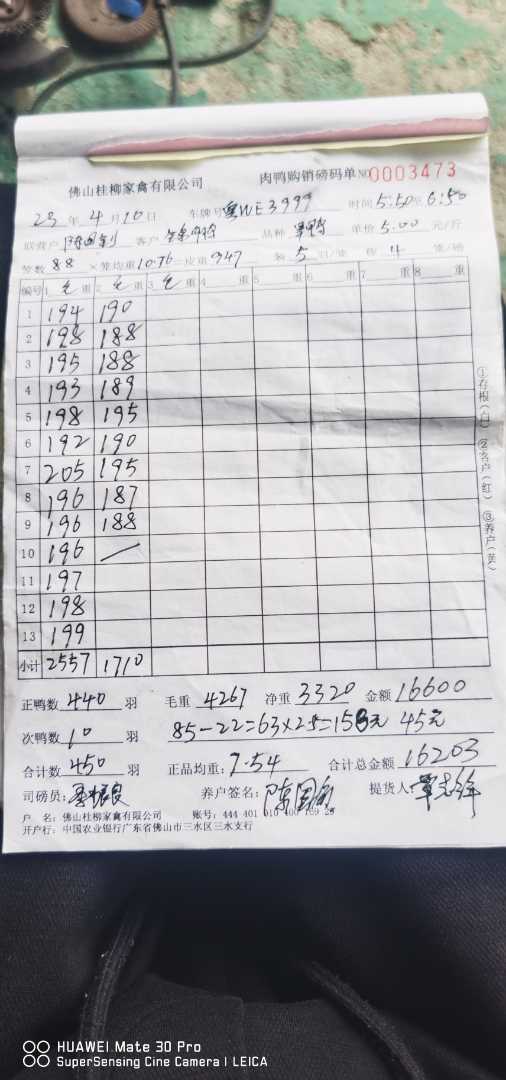 佛山桂柳家禽有限公司 肉鸭购销磅码单 NO 0003473
23 年 4 月 10 日 车牌号 粤WE3999 时间 5:50至6:50
联营户 客户 品种 单价 5.00 元/斤
笼数 88 × 笼均重 10.76 皮重 947 装 5 只/笼 称 4 笼/磅
编号 1 毛 重 2 毛 重 3 毛 重 4 重 5 重 6 重 7 重 8 重
1 194 190
2 198 188
3 195 188
4 193 189
5 198 195
6 192 190
7 205 195
8 196 187
9 196 188
10 196 /
11 197
12 198
13 199
小计 2557 1710
正鸭数 440 羽 毛重 4267 净重 3320 金额 16600
次鸭数 10 羽 85-22=63×2.5=158元 45元
合计数 450 羽 正品均重: 7.54 合计总金额 16203
司磅员: 养户签名: 陈国 提货人
户 名: 佛山桂柳家禽有限公司 账号: 444 401 010 400 169 29
开户行: 中国农业银行广东省佛山市三水区三水支行
①存根(白) ②客户(红) ③养户(黄)
HUAWEI Mate 30 Pro
SuperSensing Cine Camera | LEICA